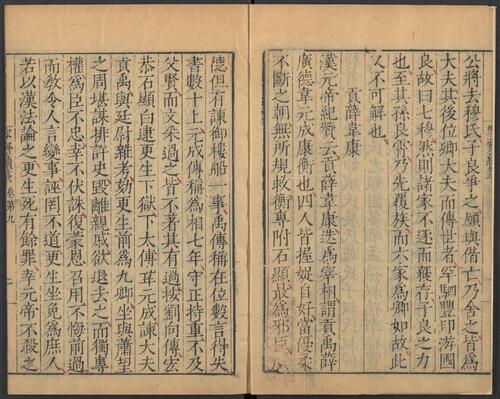 公將去穆氏子良爭之願與偕亡乃舍之皆爲
大夫其後位卿大夫而傳世者罕駟豐印游國
良故曰七穆然則諸家不逐而獲存子良之力
也至其孫良霄乃先覆族而六家爲卿如故此
又不可解也
貢薛韋康
漢元帝紀贊云貢薛韋康迭爲宰相謂貢禹薛
廣德韋元成康衡也四人皆握娖自好當優柔
不斷之朝無所規救衡專附石顯最爲邪臣
德但有諫御樓船一事禹傳稱在位數言得失
書數十上元成傳稱爲相七年守正持重不及
父賢而文采過之皆不著其有過按劉向傳宏
恭石顯白逮更生下獄下太傅韋元成諫大夫
貢禹與廷尉雜考劾更生前爲九卿坐與蕭望
之周堪謀排許史毀離親戚欲退去之而獨專
權爲臣不忠幸不伏誅復蒙恩召用不悔前過
而教令人言變事誣罔不道更生坐免爲庶人
若以漢法論之更生死有餘罪幸元帝不殺之